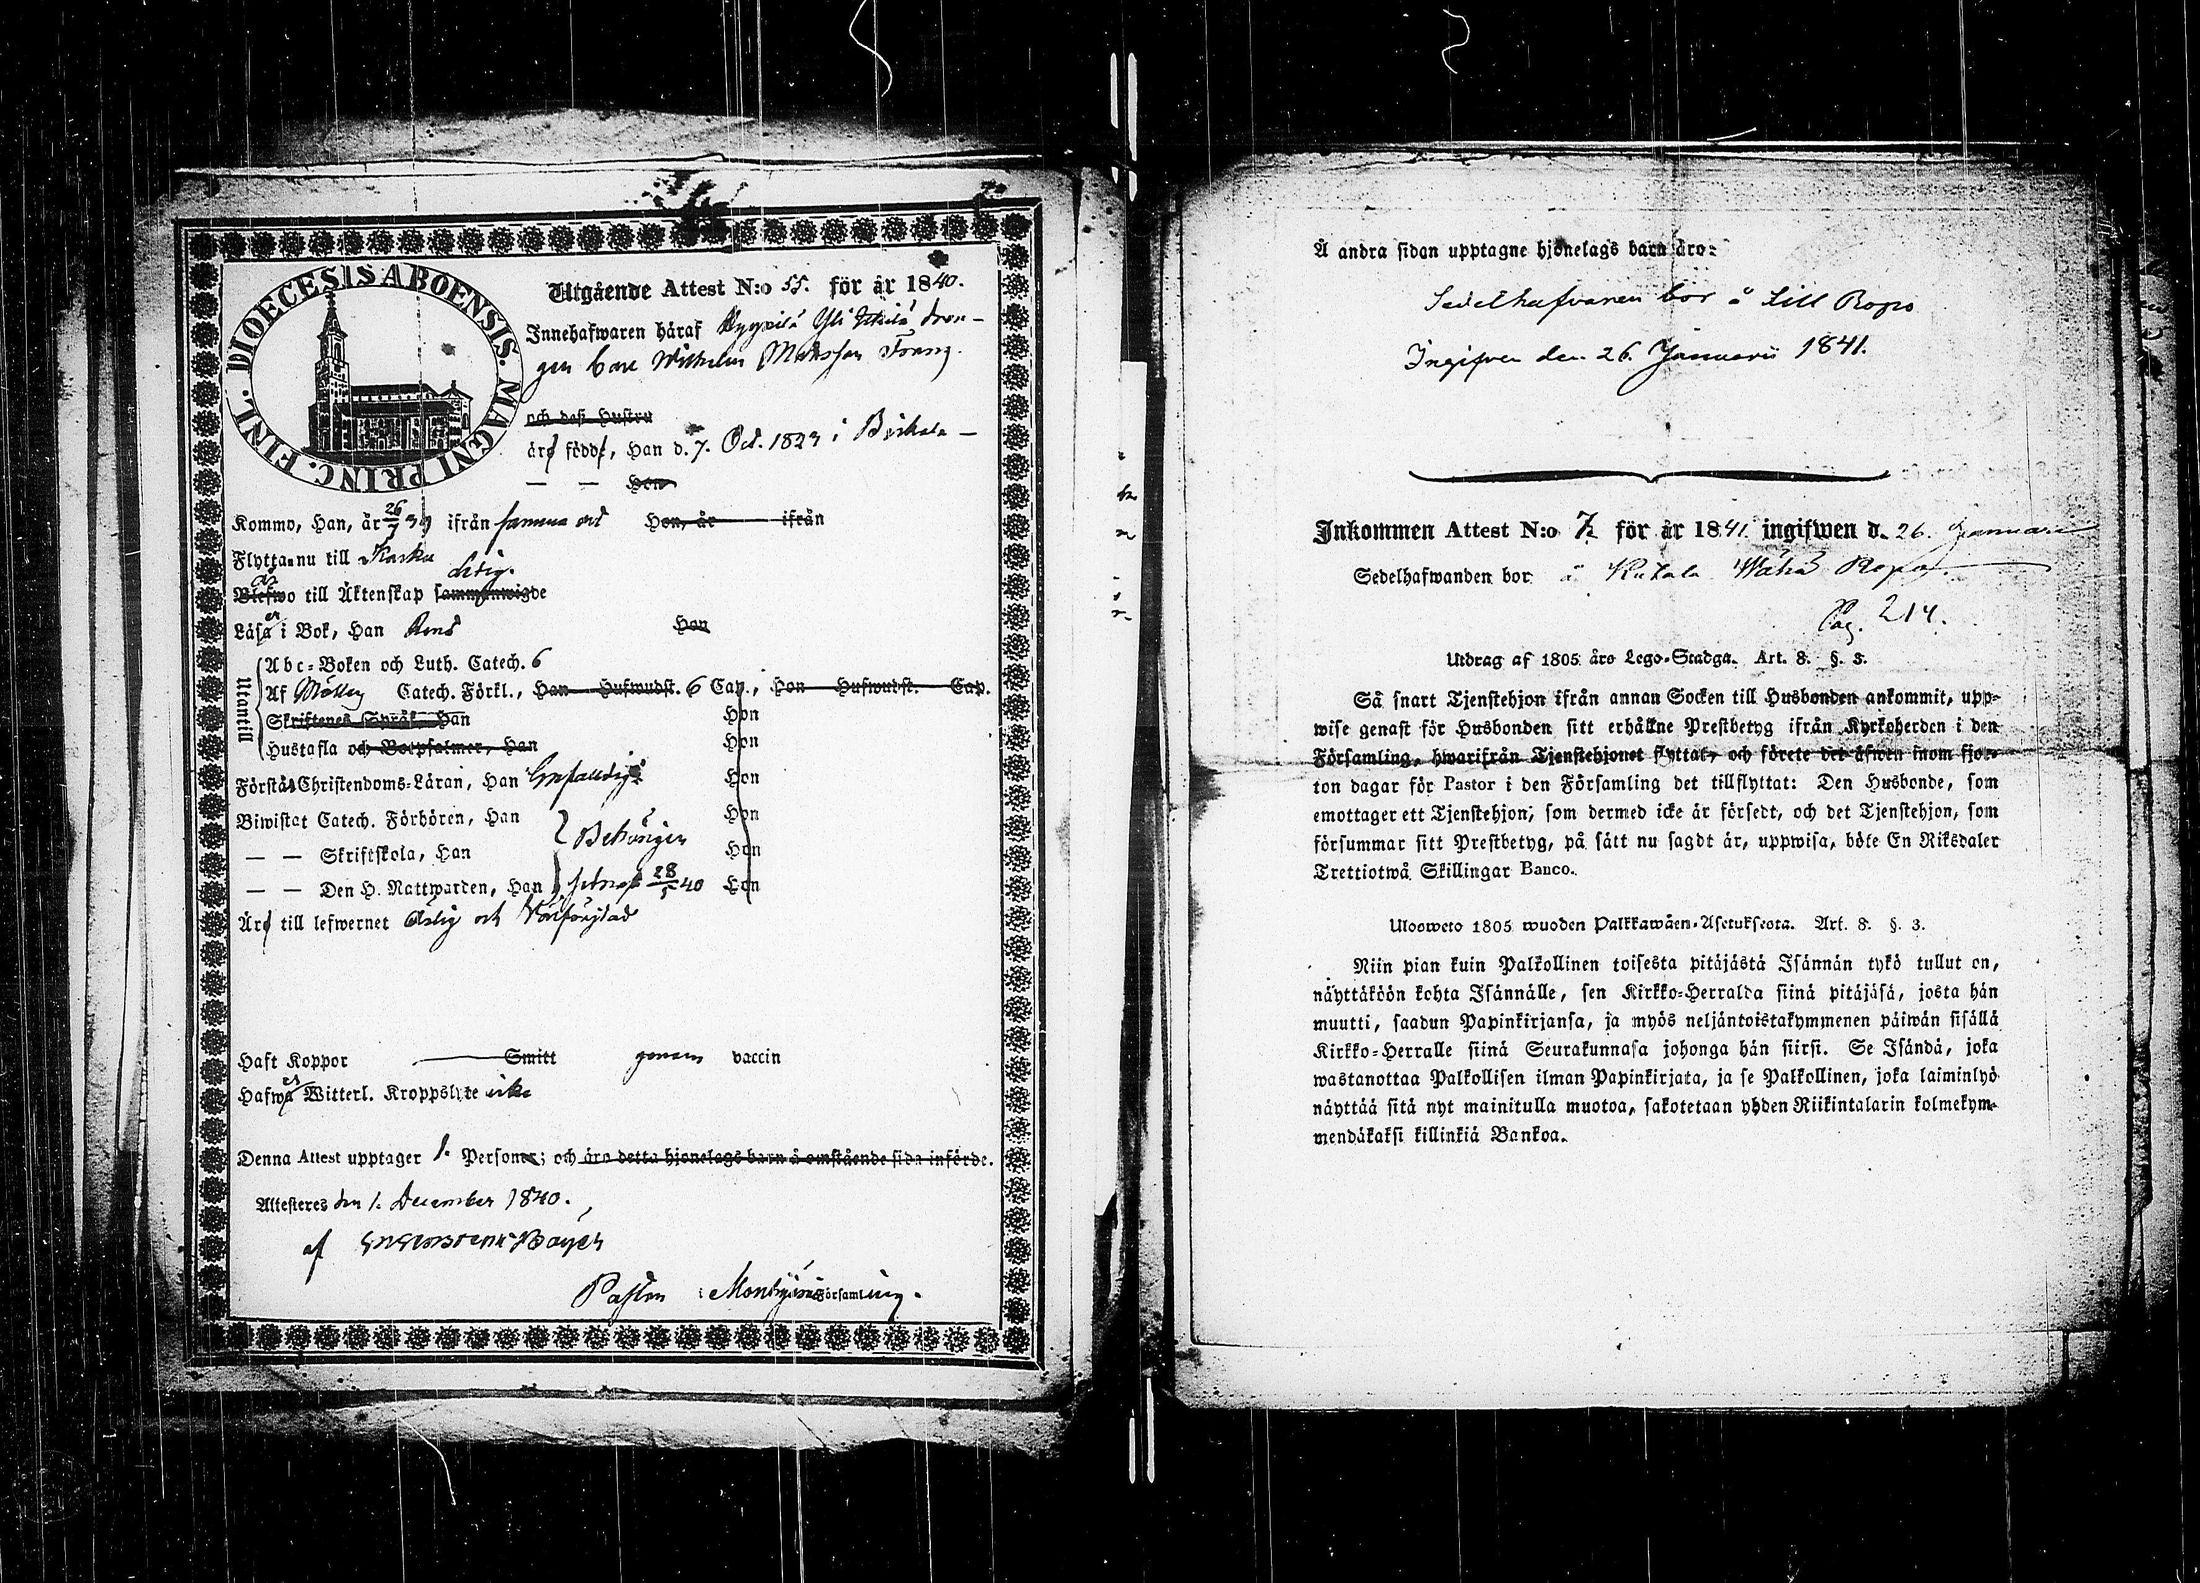 DIOECESIS ABOENSIS. MAGNI PRINC. FINL.
Utgående Attest N:o 55. för år 1840.
Innehafwaren häraf Kyynilä Yli dren-
gen Carl Wilhelm Matsson Franz.
och dess Hustru
äro födde, Han d. 7. Oct. 1823 i Birkala —
— — Hon
Kommo, Han, år 26/7 39 ifrån samma ort Hon, år ifrån
Flytta nu till Karku
är ledig.
Blefwo till Äktenskap sammanwigde
Läsa er i Bok, Han Rent Hon
Utantill
Abc-Boken och Luth. Catech. 6
Af Catech. Förkl., Han Hufwudst. 6 Cap., Hon Hufwudst. Cap.
Skriftenes Språk Han Hon
Hustafla och Botpsalmer, Han Hon
Förstå Christendoms-Läran, Han Enfaldigt Hon
Biwistat Catech. Förhören, Han Hon
Behörigen
— — Skriftskola, Han Hon
— — Den H. Nattwarden, Han senast 28/5 40 Hon
Äro till lefwernet ärlig och Välfrejdad
Haft Koppor Smitt genom vaccin
Hafwa er Witterl. Kroppslyte icke
Denna Attest upptager 1. Personer; och äro detta hjonelags barn å omstående sida införde.
Attesteras den 1. December 1840.
af
Pastor i Församling.
Å andra sidan upptagne hjonelags barn äro:
Sedelhafvaren bor å Lill Ropo
Ingifven den 26. Januarii 1841.
Inkommen Attest N:o 7. för år 1841 ingifwen d. 26. Januari
Sedelhafwanden bor å Kutala Wähä Ropo
Pag. 214.
Utdrag af 1805 års Lego-Stadga. Art. 8. §. 3.
Så snart Tjenstehjon ifrån annan Socken till Husbonden ankommit, upp-
wise genast för Husbonden sitt erhållne Prestbetyg ifrån Kyrkoherden i den
Församling, hwarifrån Tjenstehjonet flyttat, och förete det äfwen inom fjor-
ton dagar för Pastor i den Församling det tillflyttat: Den Husbonde, som
emottager ett Tjenstehjon, som dermed icke är försedt, och det Tjenstehjon, som
försummar sitt Prestbetyg, på sätt nu sagdt är, uppwisa, böte En Riksdaler
Trettiotwå Skillingar Banco.
Ulosweto 1805 wuoden Palkkawäen-Asetuksesta. Art. 8. §. 3.
Niin pian kuin Palkollinen toisesta pitäjästä Isännän tykö tullut on,
näyttäköön kohta Isännälle, sen Kirkko-Herralda siinä pitäjäsä, josta hän
muutti, saadun Papinkirjansa, ja myös neljäntoistakymmenen päiwän sisällä
Kirkko-Herralle siinä Seurakunnasa johonga hän siirsi. Se Isändä, joka
wastanottaa Palkollisen ilman Papinkirjata, ja se Palkollinen, joka laiminlyö
näyttää sitä nyt mainitulla muotoa, sakotetaan yhden Riikintalarin kolmekym-
mendäkaksi killinkiä Bankoa.